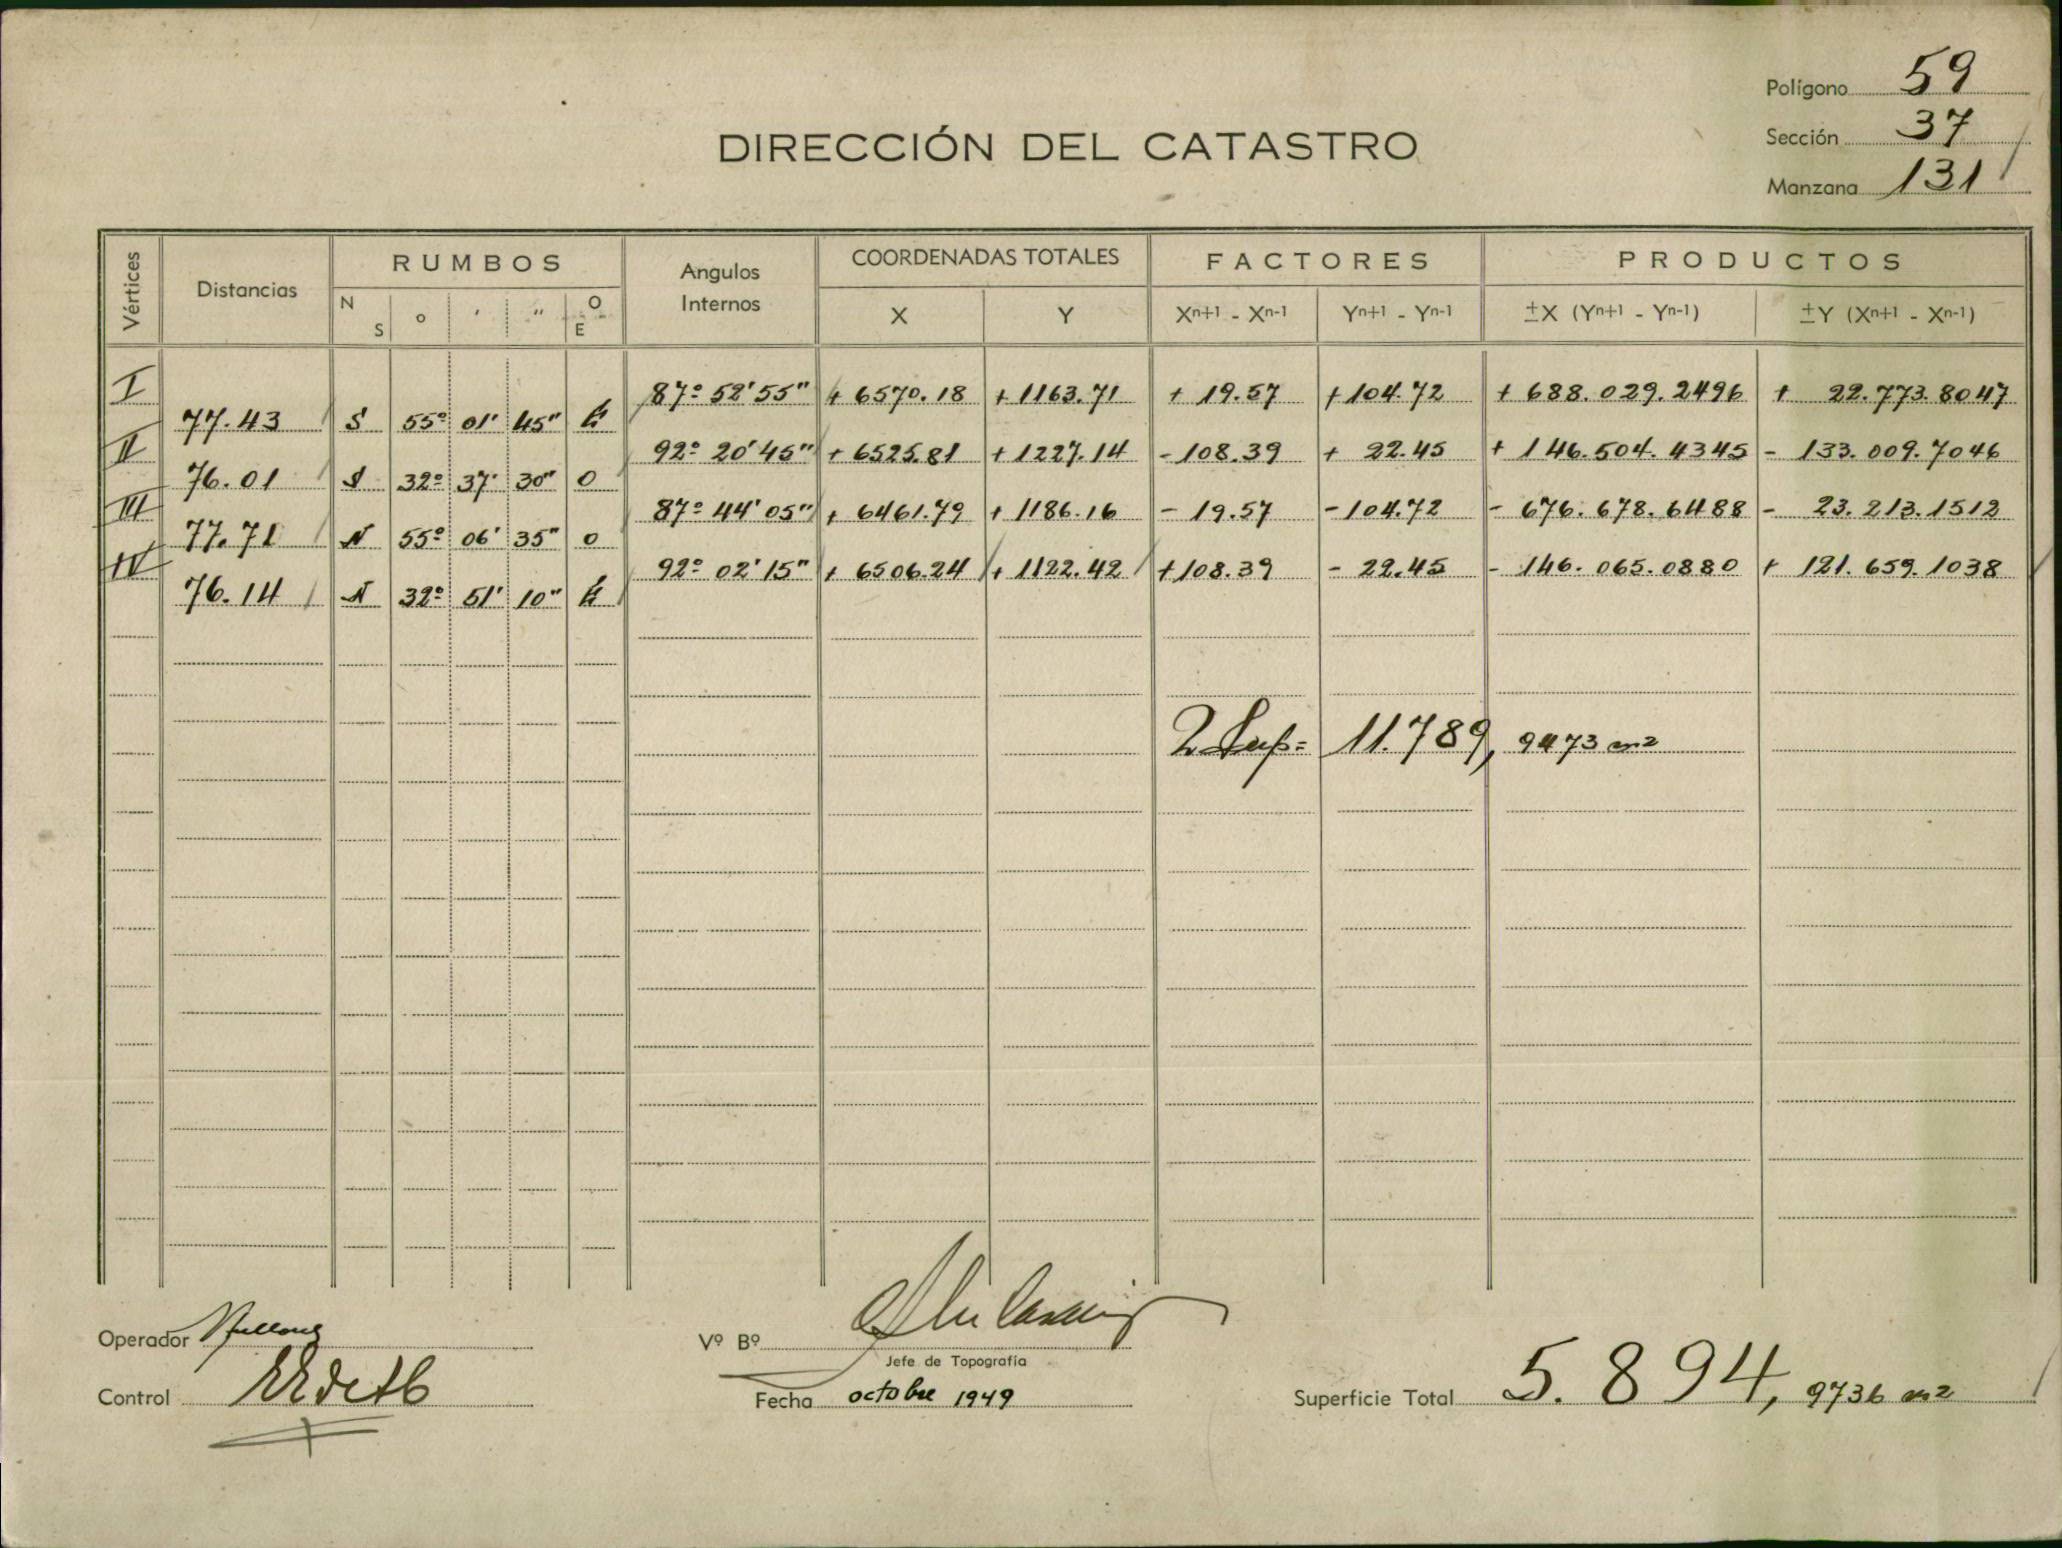 Polígono 59
Sección 37
Manzana 131
DIRECCIÓN DEL CATASTRO
Vértices Distancias RUMBOS Angulos Internos COORDENADAS TOTALES FACTORES PRODUCTOS
N S o ' " O E X Y Xn+1 - Xn-1 Yn+1 - Yn-1 ±X (Yn+1 - Yn-1) ±Y (Xn+1 - Xn-1)
I 87º 52' 55" + 6570.18 + 1163.71 + 19.57 + 104.72 + 688.029.2496 + 22.773.8047
77.43 S 55º 01' 45" E
II 92º 20' 45" + 6525.81 + 1227.14 - 108.39 + 22.45 + 146.504.4345 - 133.009.7046
76.01 S 32º 37' 30" O
III 87º 44' 05" + 6461.79 + 1186.16 - 19.57 - 104.72 - 676.678.6488 - 23.213.1512
77.71 N 55º 06' 35" O
IV 92º 02' 15" + 6506.24 + 1122.42 + 108.39 - 22.45 - 146.065.0880 + 121.659.1038
76.14 N 32º 51' 10" E
2 Sup = 11.789, 9473 m2
Operador
Vº Bº
Jefe de Topografía
Control
Fecha octobre 1949
Superficie Total 5.894, 9736 m2